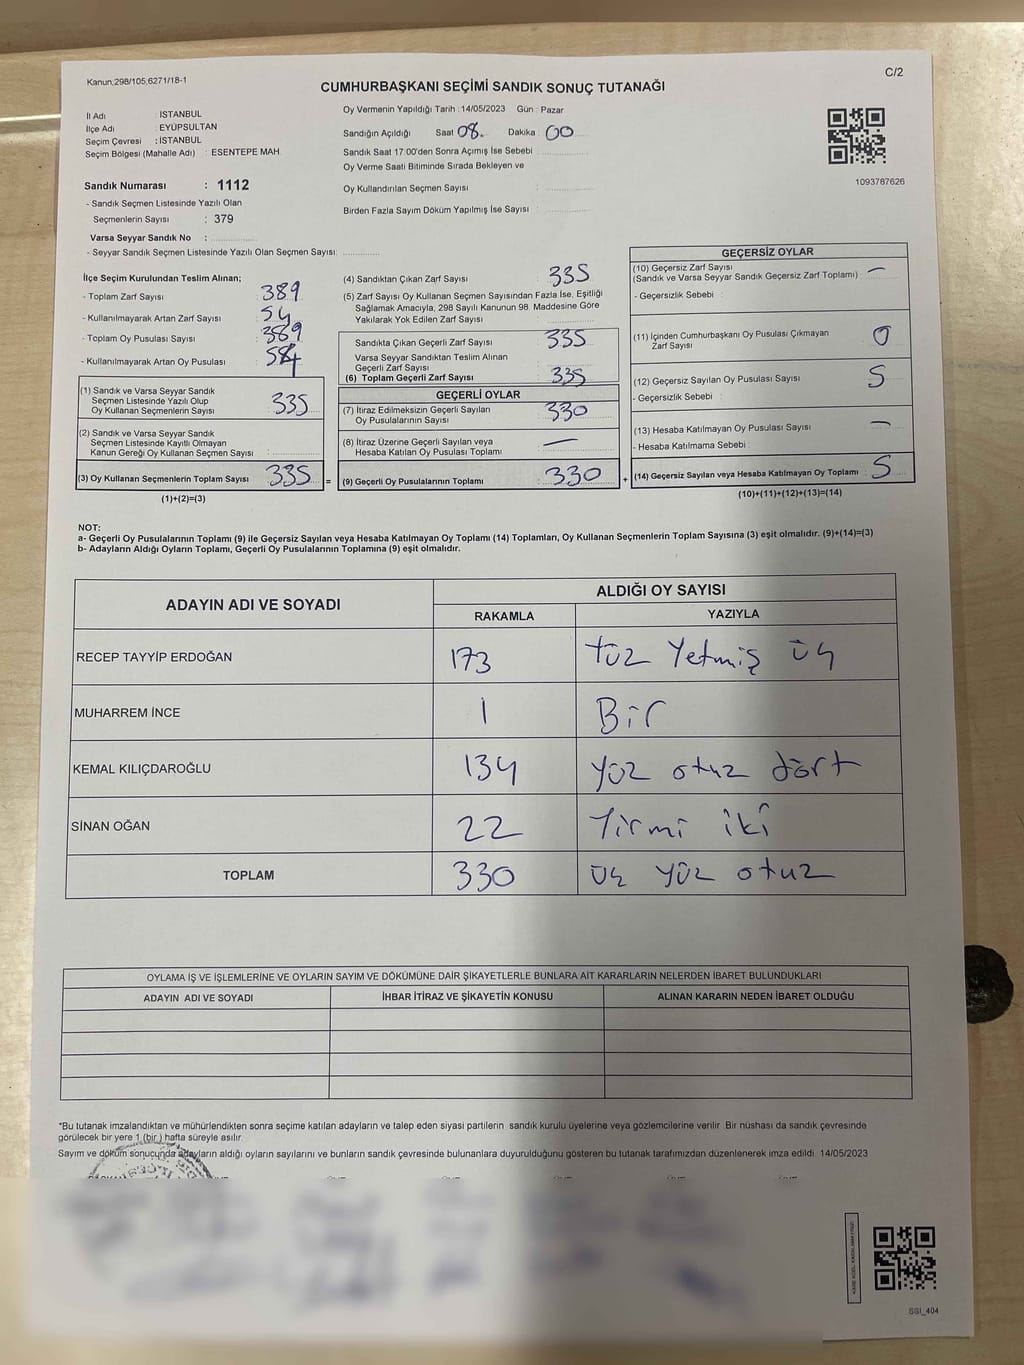 Kanun;298/105;6271/18-1
C/2
CUMHURBAŞKANI SEÇİMİ SANDIK SONUÇ TUTANAĞI
İl Adı : İSTANBUL
İlçe Adı : EYÜPSULTAN
Seçim Çevresi : İSTANBUL
Seçim Bölgesi (Mahalle Adı) : ESENTEPE MAH.
Oy Vermenin Yapıldığı Tarih : 14/05/2023 Gün : Pazar
Sandığın Açıldığı Saat 08. Dakika : 00
Sandık Saat 17:00'den Sonra Açımış İse Sebebi :
Oy Verme Saati Bitiminde Sırada Bekleyen ve
Oy Kullandırılan Seçmen Sayısı :
Birden Fazla Sayım Döküm Yapılmış İse Sayısı :
1093787626
Sandık Numarası : 1112
- Sandık Seçmen Listesinde Yazılı Olan
Seçmenlerin Sayısı : 379
Varsa Seyyar Sandık No :
- Seyyar Sandık Seçmen Listesinde Yazılı Olan Seçmen Sayısı:
İlçe Seçim Kurulundan Teslim Alınan;
- Toplam Zarf Sayısı : 389
- Kullanılmayarak Artan Zarf Sayısı : 54
- Toplam Oy Pusulası Sayısı : 389
- Kullanılmayarak Artan Oy Pusulası :
(1) Sandık ve Varsa Seyyar Sandık
Seçmen Listesinde Yazılı Olup
Oy Kullanan Seçmenlerin Sayısı : 335
(2) Sandık ve Varsa Seyyar Sandık
Seçmen Listesinde Kayıtlı Olmayan
Kanun Gereği Oy Kullanan Seçmen Sayısı :
(3) Oy Kullanan Seçmenlerin Toplam Sayısı : 335
(1)+(2)=(3)
(4) Sandıktan Çıkan Zarf Sayısı : 335
(5) Zarf Sayısı Oy Kullanan Seçmen Sayısından Fazla İse, Eşitliği
Sağlamak Amacıyla, 298 Sayılı Kanunun 98. Maddesine Göre
Yakılarak Yok Edilen Zarf Sayısı :
Sandıkta Çıkan Geçerli Zarf Sayısı : 335
Varsa Seyyar Sandıktan Teslim Alınan
Geçerli Zarf Sayısı :
(6) Toplam Geçerli Zarf Sayısı : 335
GEÇERLİ OYLAR
(7) İtiraz Edilmeksizin Geçerli Sayılan
Oy Pusulasının Sayısı : 330
(8) İtiraz Üzerine Geçerli Sayılan veya
Hesaba Katılan Oy Pusulası Toplamı : —
= (9) Geçerli Oy Pusulalarının Toplamı : 330
GEÇERSİZ OYLAR
(10) Geçersiz Zarf Sayısı
(Sandık ve Varsa Seyyar Sandık Geçersiz Zarf Toplamı) : —
- Geçersizlik Sebebi :
(11) İçinden Cumhurbaşkanı Oy Pusulası Çıkmayan
Zarf Sayısı : 0
(12) Geçersiz Sayılan Oy Pusulası Sayısı : 5
- Geçersizlik Sebebi :
(13) Hesaba Katılmayan Oy Pusulası Sayısı : —
- Hesaba Katılmama Sebebi :
+ (14) Geçersiz Sayılan veya Hesaba Katılmayan Oy Toplamı : 5
(10)+(11)+(12)+(13)=(14)
NOT:
a- Geçerli Oy Pusulalarının Toplamı (9) ile Geçersiz Sayılan veya Hesaba Katılmayan Oy Toplamı (14) Toplamları, Oy Kullanan Seçmenlerin Toplam Sayısına (3) eşit olmalıdır. (9)+(14)=(3)
b- Adayların Aldığı Oyların Toplamı, Geçerli Oy Pusulalarının Toplamına (9) eşit olmalıdır.
ADAYIN ADI VE SOYADI
ALDIĞI OY SAYISI
RAKAMLA YAZIYLA
RECEP TAYYİP ERDOĞAN 173 Yüz Yetmiş üç
MUHARREM İNCE 1 Bir
KEMAL KILIÇDAROĞLU 134 yüz otuz dört
SİNAN OĞAN 22 Yirmi iki
TOPLAM 330 üç yüz otuz
OYLAMA İŞ VE İŞLEMLERİNE VE OYLARIN SAYIM VE DÖKÜMÜNE DAİR ŞİKAYETLERLE BUNLARA AİT KARARLARIN NELERDEN İBARET BULUNDUKLARI
ADAYIN ADI VE SOYADI İHBAR İTİRAZ VE ŞİKAYETİN KONUSU ALINAN KARARIN NEDEN İBARET OLDUĞU
*Bu tutanak imzalandıktan ve mühürlendikten sonra seçime katılan adayların ve talep eden siyasi partilerin sandık kurulu üyelerine veya gözlemcilerine verilir. Bir nüshası da sandık çevresinde
görülecek bir yere 1 (bir ) hafta süreyle asılır.
Sayım ve döküm sonucunda adayların aldığı oyların sayılarını ve bunların sandık çevresinde bulunanlara duyurulduğunu gösteren bu tutanak tarafımızdan düzenlenerek imza edildi. 14/05/2023
SSI_404